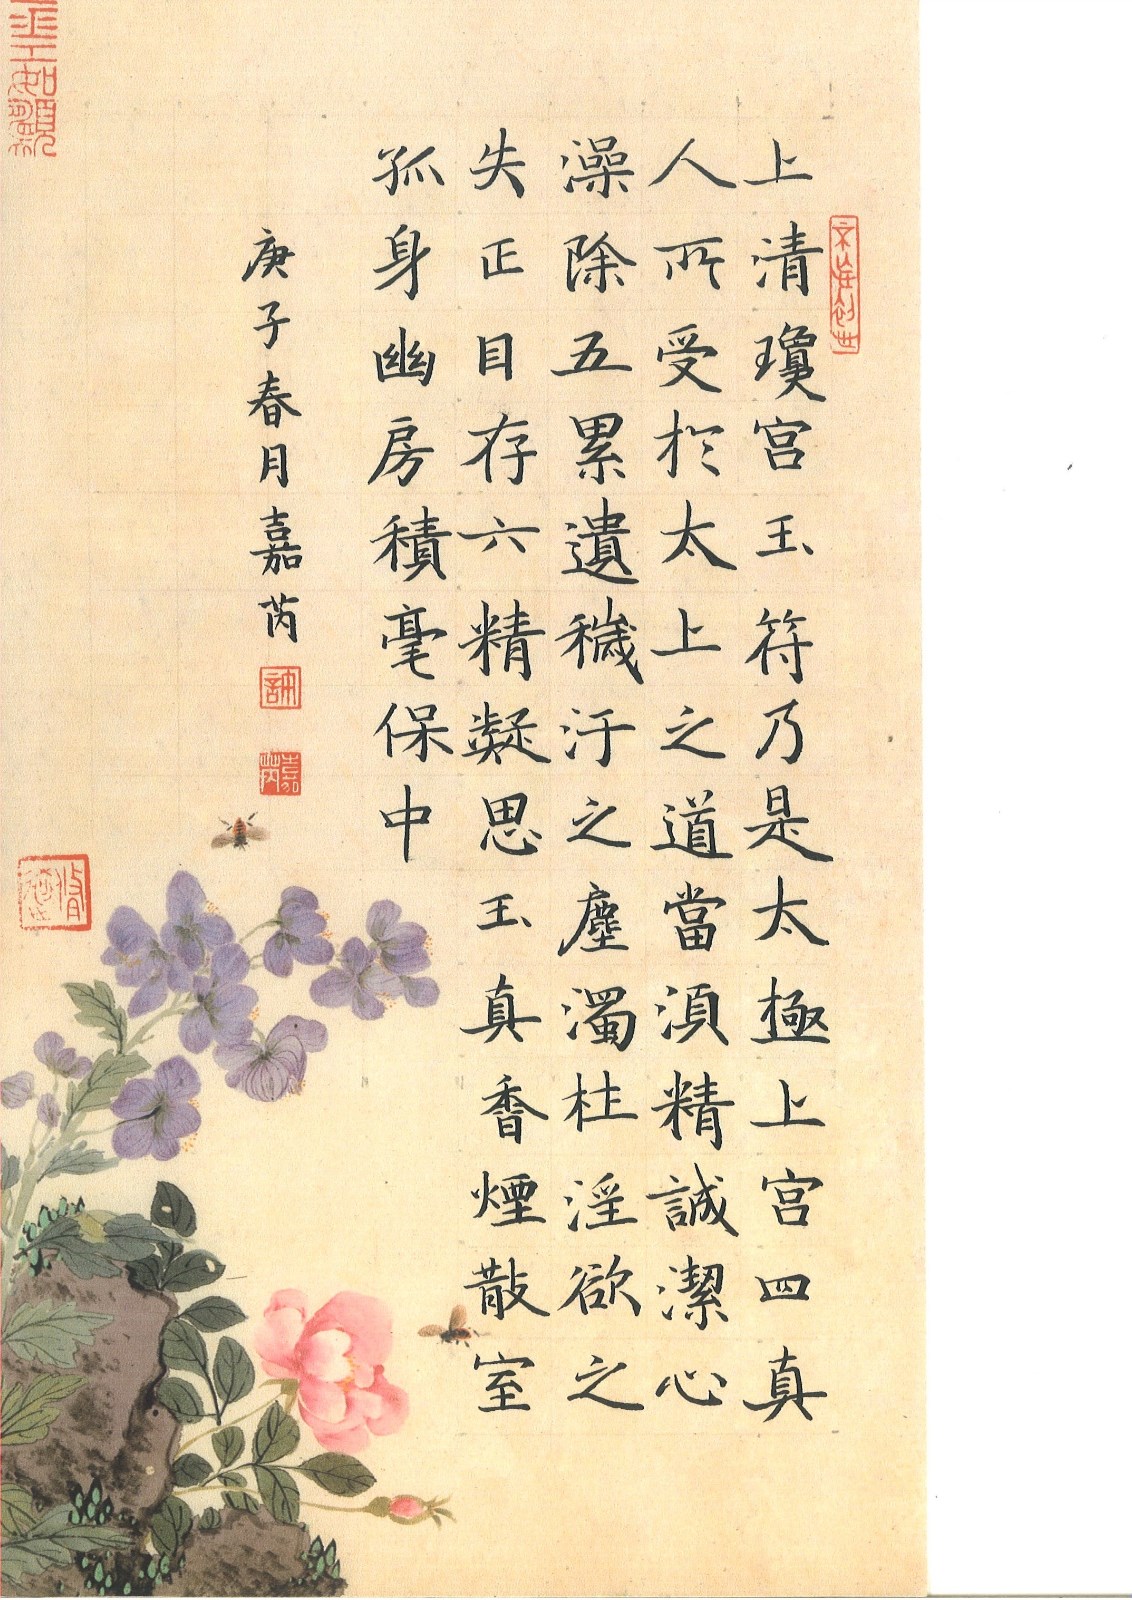 上清瓊宮玉符乃是太極上宮四真
人所受於太上之道當須精誠潔心
澡除五累遺穢汙之塵濁杜淫欲之
失正目存六精凝思玉真香煙散室
孤身幽房積毫保中
庚子春月嘉芮
嘉芮